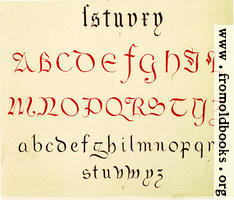 ſstuvxy
ABCDEFGHI
MNOPQRSTY
abcdefghilmnopqr
stuvwyz
www.fromoldbooks.org